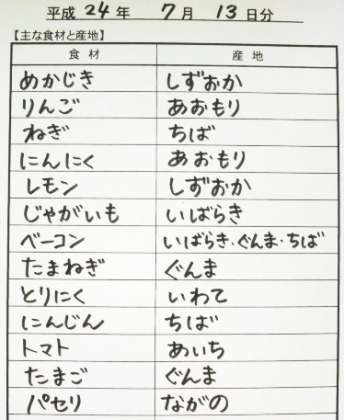 平成24年 7月 13日分
【主な食材と産地】
食材 産地
めかじき しずおか
りんご あおもり
ねぎ ちば
にんにく あおもり
レモン しずおか
じゃがいも いばらき
ベーコン いばらき・ぐんま・ちば
たまねぎ ぐんま
とりにく いわて
にんじん ちば
トマト あいち
たまご ぐんま
パセリ ながの